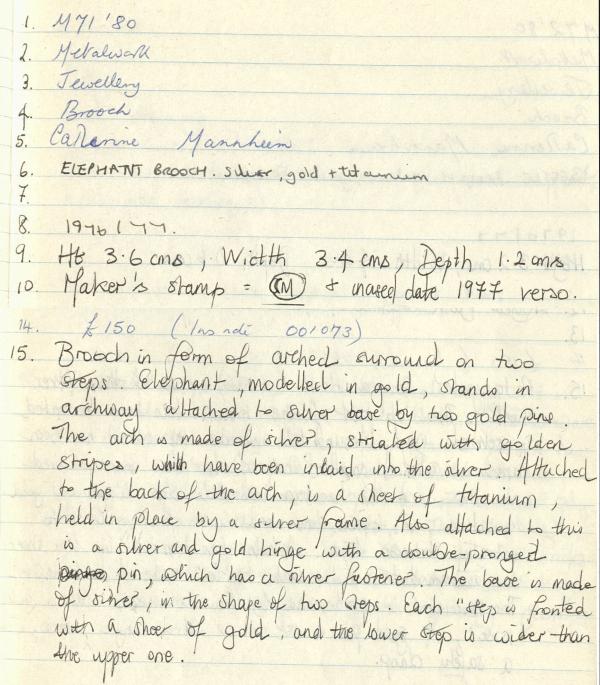 1. M71 '80
2. Metalwork
3. Jewellery
4. Brooch
5. Catherine Mannheim
6. ELEPHANT BROOCH. silver, gold + titanium
7.
8. 1976/77.
9. Ht 3.6 cms, Width 3.4 cms, Depth 1.2 cms
10. Maker's stamp = CM + incised date 1977 verso.
14. £150 (Ins note 001073)
15. Brooch in form of arched surround on two
steps. Elephant, modelled in gold, stands in
archway attached to silver base by two gold pins.
The arch is made of silver, striated with golden
stripes, which have been inlaid into the silver. Attached
to the back of the arch, is a sheet of titanium,
held in place by a silver frame. Also attached to this
is a silver and gold hinge with a double-pronged
pin, which has a silver fastener. The base is made
of silver, in the shape of two steps. Each "step is fronted
with a sheet of gold, and the lower step is wider than
the upper one.